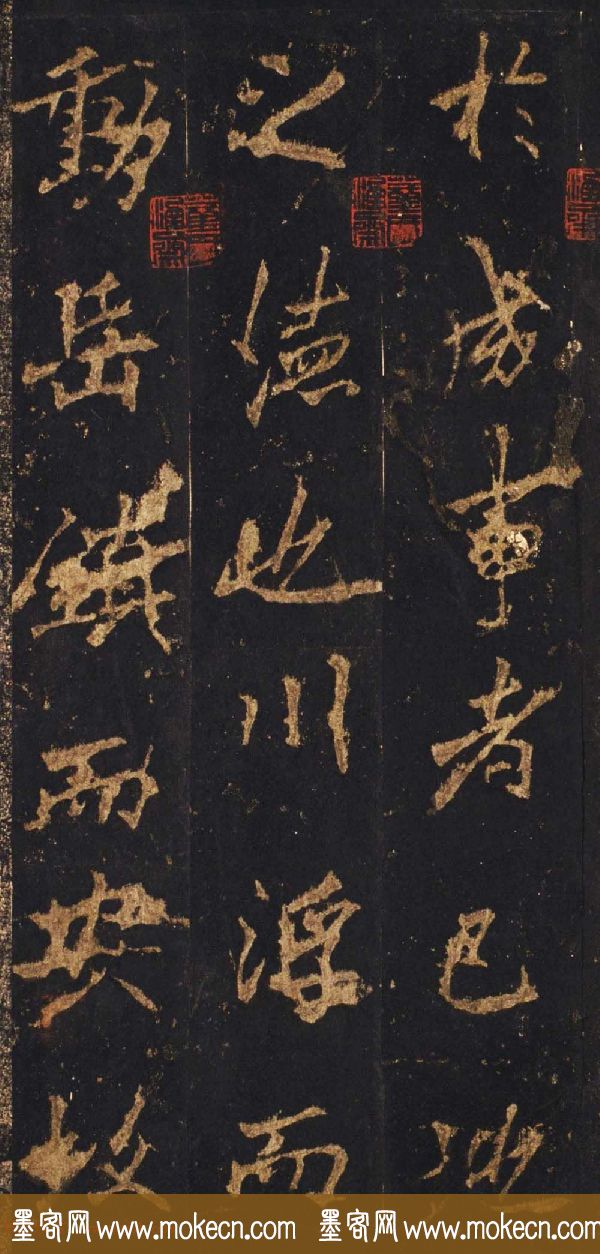 於成事者已地
之德也川浮而
動岳鎮而安故
墨客网 www.mokecn.com 墨客网 www.mokecn.com